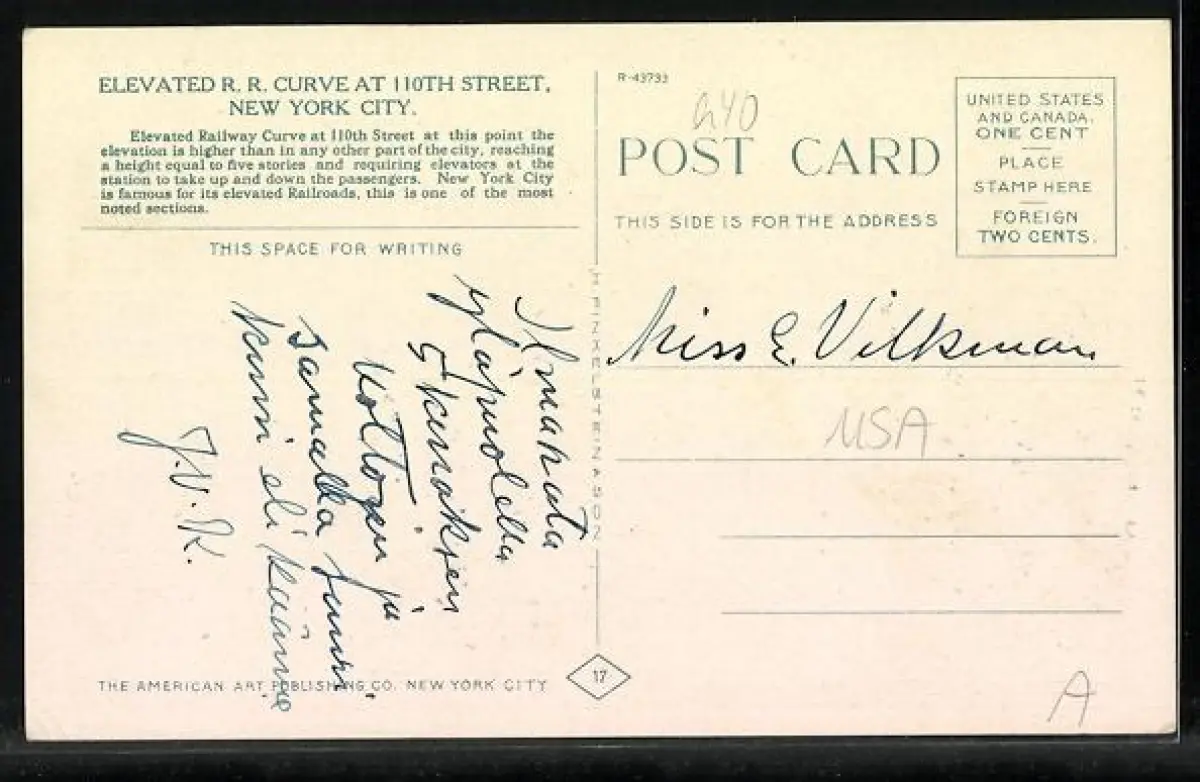 ELEVATED R. R. CURVE AT 110TH STREET,
NEW YORK CITY.
Elevated Railway Curve at 110th Street at this point the
elevation is higher than in any other part of the city, reaching
a height equal to five stories and requiring elevators at the
station to take up and down the passengers. New York City
is famous for its elevated Railroads, this is one of the most
noted sections.
THIS SPACE FOR WRITING
Ilmarata
yläpuolella
5
ja
samalla
eli
J.V.K.
THE AMERICAN ART PUBLISHING CO. NEW YORK CITY
H. FINKELSTEIN & SON
17
R-43733
640
POST CARD
THIS SIDE IS FOR THE ADDRESS
UNITED STATES
AND CANADA.
ONE CENT
PLACE
STAMP HERE
FOREIGN
TWO CENTS.
Miss E. Vilkman
USA
A